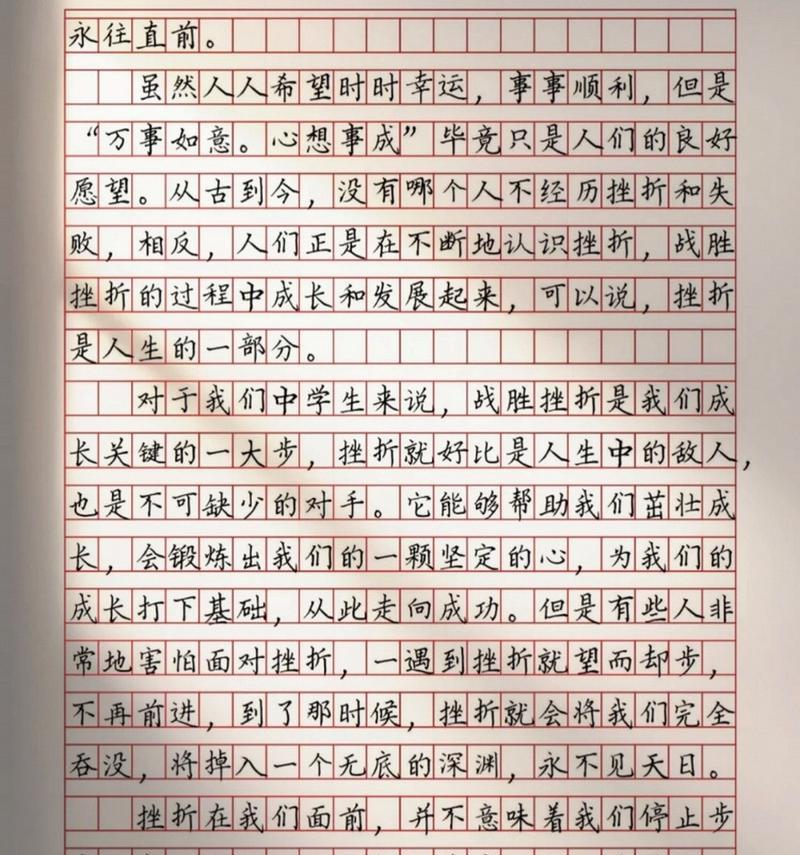 永往直前。
虽然人人希望时时幸运，事事顺利，但是
“万事如意。心想事成”毕竟只是人们的良好
愿望。从古到今，没有哪个人不经历挫折和失
败，相反，人们正是在不断地认识挫折，战胜
挫折的过程中成长和发展起来，可以说，挫折
是人生的一部分。
对于我们中学生来说，战胜挫折是我们成
长关键的一大步，挫折就好比是人生中的敌人，
也是不可缺少的对手。它能够帮助我们茁壮成
长，会锻炼出我们的一颗坚定的心，为我们的
成长打下基础，从此走向成功。但是有些人非
常地害怕面对挫折，一遇到挫折就望而却步，
不再前进，到了那时候，挫折就会将我们完全
吞没，将掉入一个无底的深渊，永不见天日。
挫折在我们面前，并不意味着我们停止步